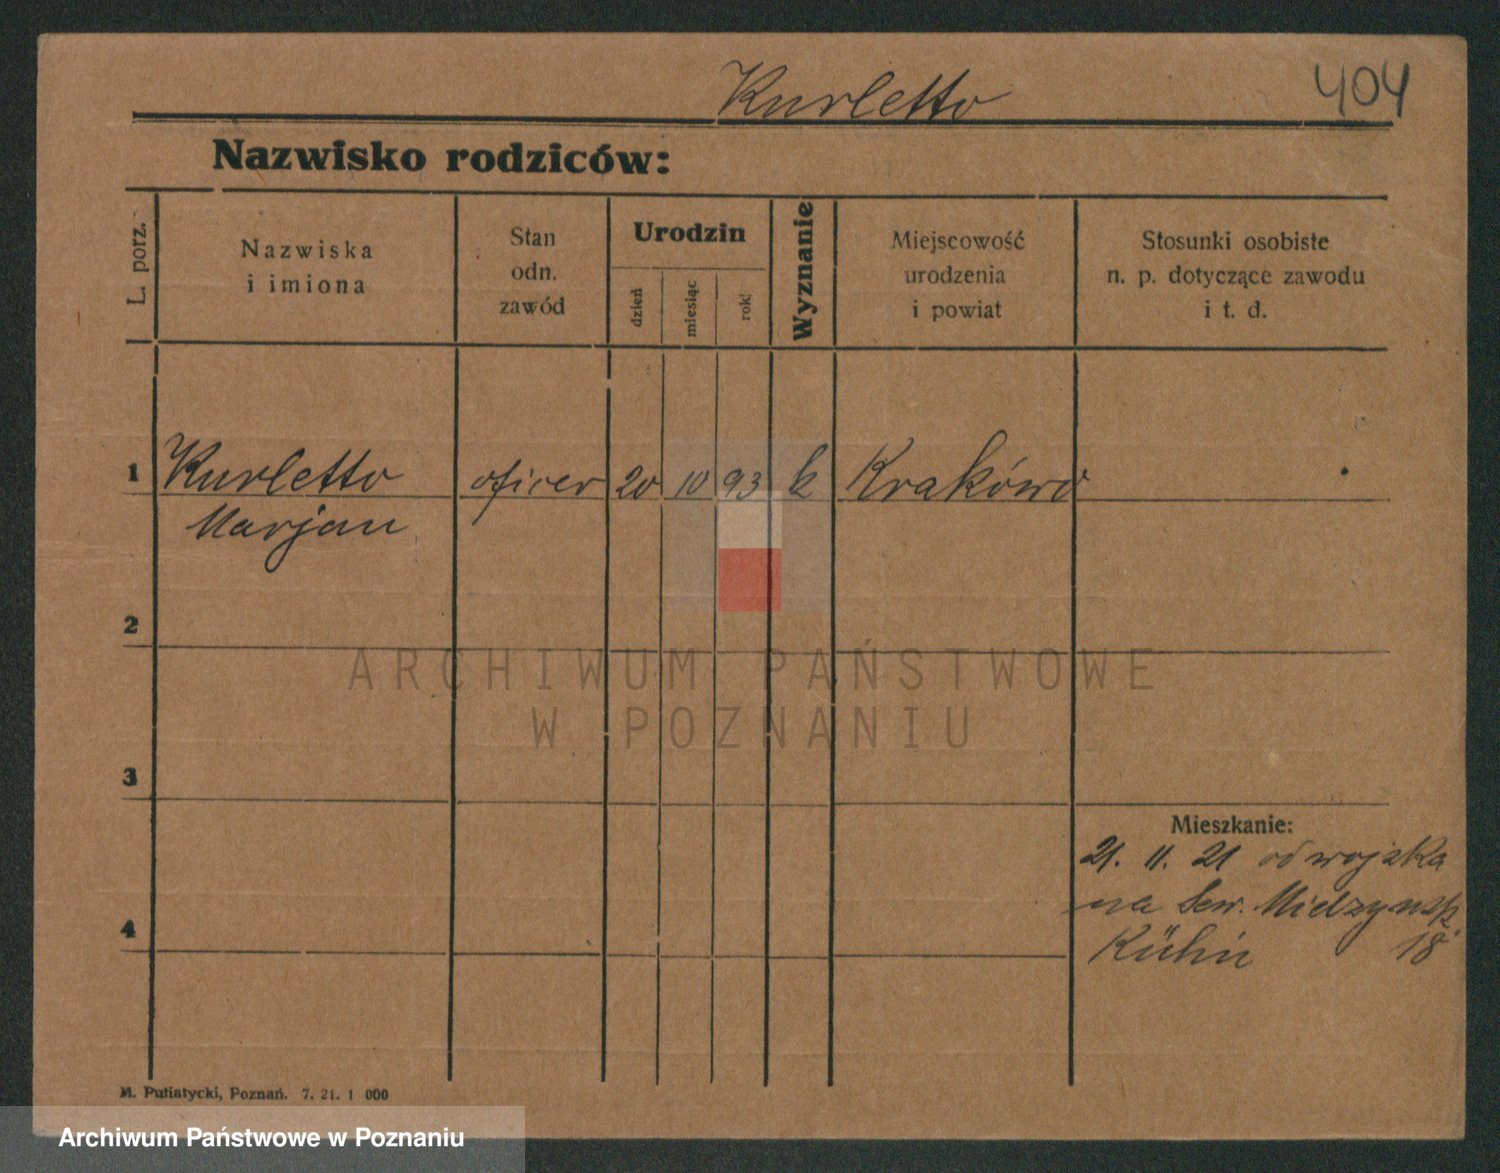 Kurletto 404
Nazwisko rodziców:
L. porz.
Nazwiska
i imiona
Stan
odn.
zawód
Urodzin
dzień
miesiąc
rok
Wyznanie
Miejscowość
urodzenia
i powiat
Stosunki osobiste
n. p. dotyczące zawodu
i t. d.
1 Kurletto oficer 20 10 93 k Kraków
Marjan
2
ARCHIWUM PAŃSTWOWE
W POZNANIU
3
Mieszkanie:
21. 11. 21 od wojska
na Sew. Mielzynsk.
4
Kühn 18
M. Putiatycki, Poznań. 7. 21. 1 000
Archiwum Państwowe w Poznaniu